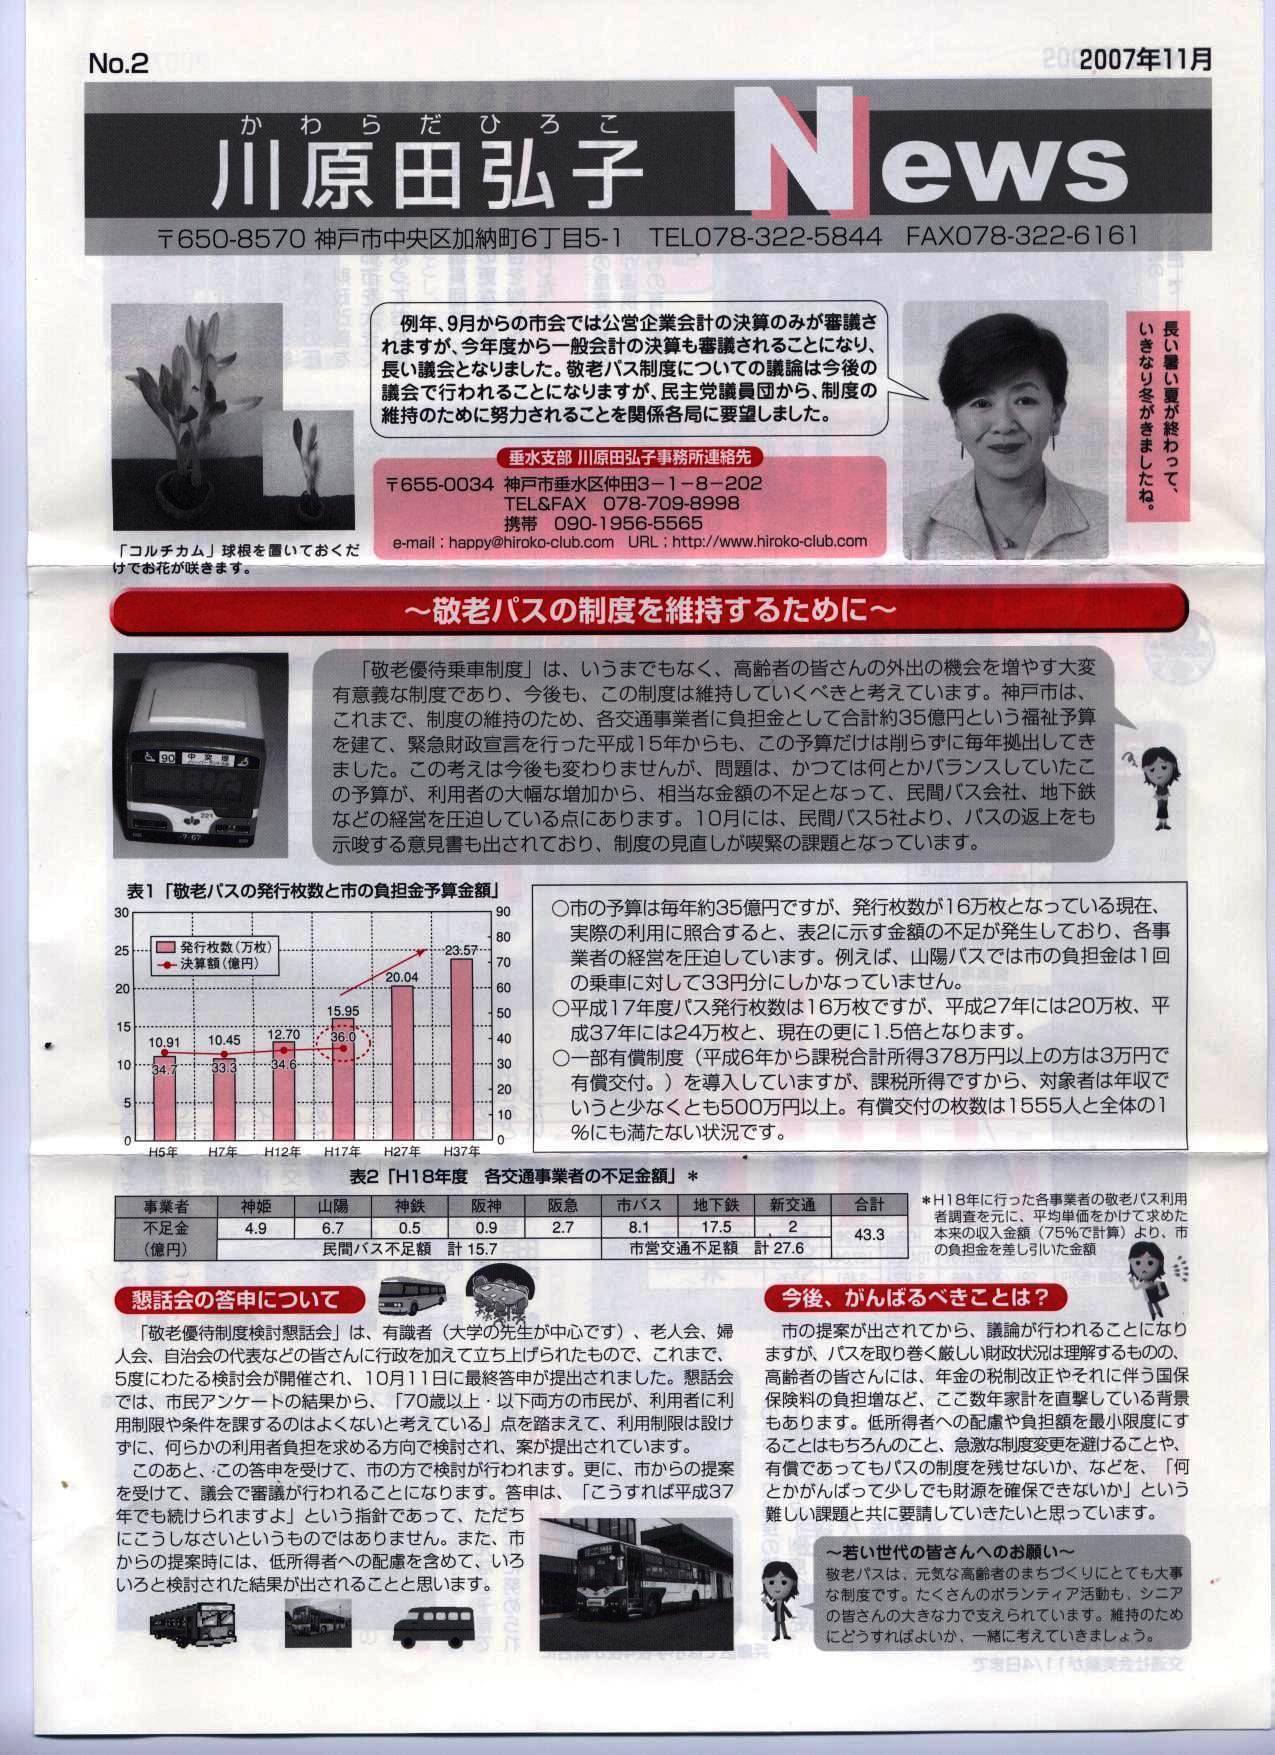 No.2
2007年11月
かわらだひろこ
川原田弘子 News
〒650-8570 神戸市中央区加納町6丁目5-1 TEL078-322-5844 FAX078-322-6161
例年、9月からの市会では公営企業会計の決算のみが審議さ
れますが、今年度から一般会計の決算も審議されることになり、
長い議会となりました。敬老パス制度についての議論は今後の
議会で行われることになりますが、民主党議員団から、制度の
維持のために努力されることを関係各局に要望しました。
長い暑い夏が終わって、
いきなり冬がきましたね。
垂水支部 川原田弘子事務所連絡先
〒655-0034 神戸市垂水区仲田3-1-8-202
TEL&FAX 078-709-8998
携帯 090-1956-5565
e-mail：happy@hiroko-club.com URL：http://www.hiroko-club.com
「コルチカム」球根を置いておくだ
けでお花が咲きます。
～敬老パスの制度を維持するために～
90
「敬老優待乗車制度」は、いうまでもなく、高齢者の皆さんの外出の機会を増やす大変
有意義な制度であり、今後も、この制度は維持していくべきと考えています。神戸市は、
これまで、制度の維持のため、各交通事業者に負担金として合計約35億円という福祉予算
を建て、緊急財政宣言を行った平成15年からも、この予算だけは削らずに毎年拠出してき
ました。この考えは今後も変わりませんが、問題は、かつては何とかバランスしていたこ
の予算が、利用者の大幅な増加から、相当な金額の不足となって、民間バス会社、地下鉄
などの経営を圧迫している点にあります。10月には、民間バス5社より、パスの返上をも
示唆する意見書も出されており、制度の見直しが喫緊の課題となっています。
表1「敬老パスの発行枚数と市の負担金予算金額」
30 25 20 15 10 5 0
90 80 70 60 50 40 30 20 10 0
発行枚数(万枚)
決算額(億円)
10.91 10.45 12.70 15.95 20.04 23.57
34.7 33.3 34.6 36.0
H5年 H7年 H12年 H17年 H27年 H37年
○市の予算は毎年約35億円ですが、発行枚数が16万枚となっている現在、
実際の利用に照合すると、表2に示す金額の不足が発生しており、各事
業者の経営を圧迫しています。例えば、山陽バスでは市の負担金は1回
の乗車に対して33円分にしかなっていません。
○平成17年度パス発行枚数は16万枚ですが、平成27年には20万枚、平
成37年には24万枚と、現在の更に1.5倍となります。
○一部有償制度（平成6年から課税合計所得378万円以上の方は3万円で
有償交付。）を導入していますが、課税所得ですから、対象者は年収で
いうと少なくとも500万円以上。有償交付の枚数は1555人と全体の1
%にも満たない状況です。
表2「H18年度 各交通事業者の不足金額」＊
事業者 神姫 山陽 神鉄 阪神 阪急 市バス 地下鉄 新交通 合計
不足金 4.9 6.7 0.5 0.9 2.7 8.1 17.5 2 43.3
（億円） 民間バス不足額 計15.7 市営交通不足額 計27.6
＊H18年に行った各事業者の敬老パス利用
者調査を元に、平均単価をかけて求めた
本来の収入金額（75%で計算）より、市
の負担金を差し引いた金額
懇話会の答申について
「敬老優待制度検討懇話会」は、有識者（大学の先生が中心です）、老人会、婦
人会、自治会の代表などの皆さんに行政を加えて立ち上げられたもので、これまで、
5度にわたる検討会が開催され、10月11日に最終答申が提出されました。懇話会
では、市民アンケートの結果から、「70歳以上・以下両方の市民が、利用者に利
用制限や条件を課するのはよくないと考えている」点を踏まえて、利用制限は設け
ずに、何らかの利用者負担を求める方向で検討され、案が提出されています。
このあと、この答申を受けて、市の方で検討が行われます。更に、市からの提案
を受けて、議会で審議が行われることになります。答申は、「こうすれば平成37
年でも続けられますよ」という指針であって、ただち
にこうしなさいというものではありません。また、市
からの提案時には、低所得者への配慮を含めて、いろ
いろと検討された結果が出されることと思います。
今後、がんばるべきことは？
市の提案が出されてから、議論が行われることになり
ますが、パスを取り巻く厳しい財政状況は理解するものの、
高齢者の皆さんには、年金の税制改正やそれに伴う国保
保険料の負担増など、ここ数年家計を直撃している背景
もあります。低所得者への配慮や負担額を最小限度にす
ることはもちろんのこと、急激な制度変更を避けることや、
有償であってもパスの制度を残せないか、などを、「何
とかがんばって少しでも財源を確保できないか」という
難しい課題と共に要請していきたいと思っています。
～若い世代の皆さんへのお願い～
敬老パスは、元気な高齢者のまちづくりにとても大事
な制度です。たくさんのボランティア活動も、シニア
の皆さんの大きな力で支えられています。維持のため
にどうすればよいか、一緒に考えていきましょう。